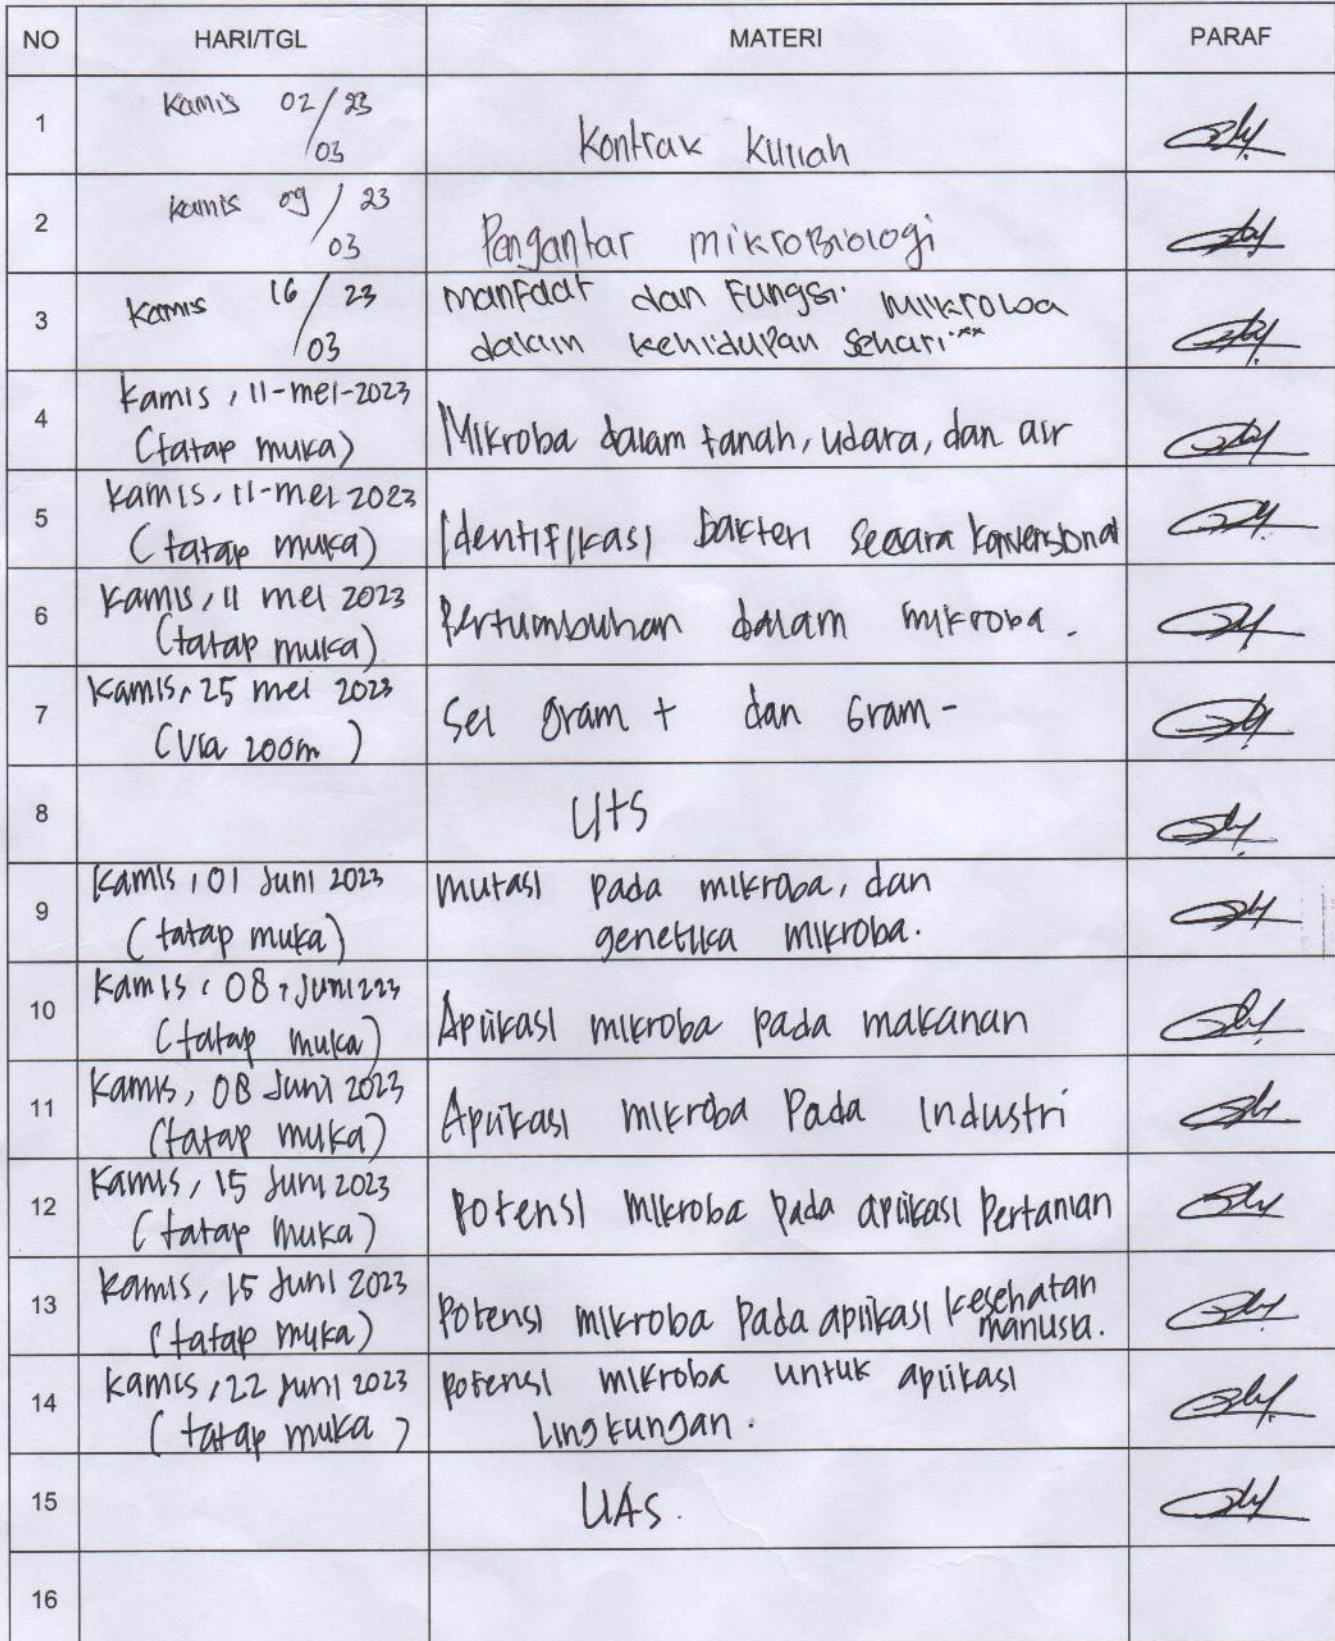 NO HARI/TGL MATERI PARAF
1 Kamis 02/03 23 Kontrak Kuliah
2 Kamis 09/03 23 Pengantar mikroBiologi
3 Kamis 16/03 23 manfaat dan Fungsi mikroba
dalam kehidupan sehari"
4 Kamis, 11-mei-2023
(tatap muka) Mikroba dalam tanah, udara, dan air
5 Kamis, 11-mei 2023
(tatap muka) Identifikasi bakteri secara konvensional
6 Kamis, 11 mei 2023
(tatap muka) Pertumbuhan dalam mikroba.
7 Kamis, 25 mei 2023
(via zoom) Sel gram + dan Gram -
8 UTS
9 Kamis, 01 Juni 2023
(tatap muka) mutasi pada mikroba, dan
genetika mikroba.
10 Kamis, 08, Juni 223
(tatap muka) Aplikasi mikroba pada makanan
11 Kamis, 08 Juni 2023
(tatap muka) Aplikasi mikroba Pada Industri
12 Kamis, 15 Juni 2023
(tatap muka) Potensi mikroba pada aplikasi Pertanian
13 Kamis, 15 Juni 2023
(tatap muka) Potensi mikroba Pada aplikasi kesehatan
manusia.
14 Kamis, 22 Juni 2023
(tatap muka) potensi mikroba untuk aplikasi
Lingkungan.
15 UAS.
16